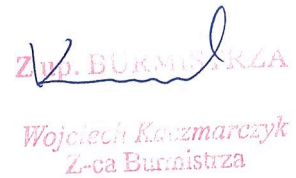 Z up. BURMISTRZA
Wojciech Kaczmarczyk
Z-ca Burmistrza